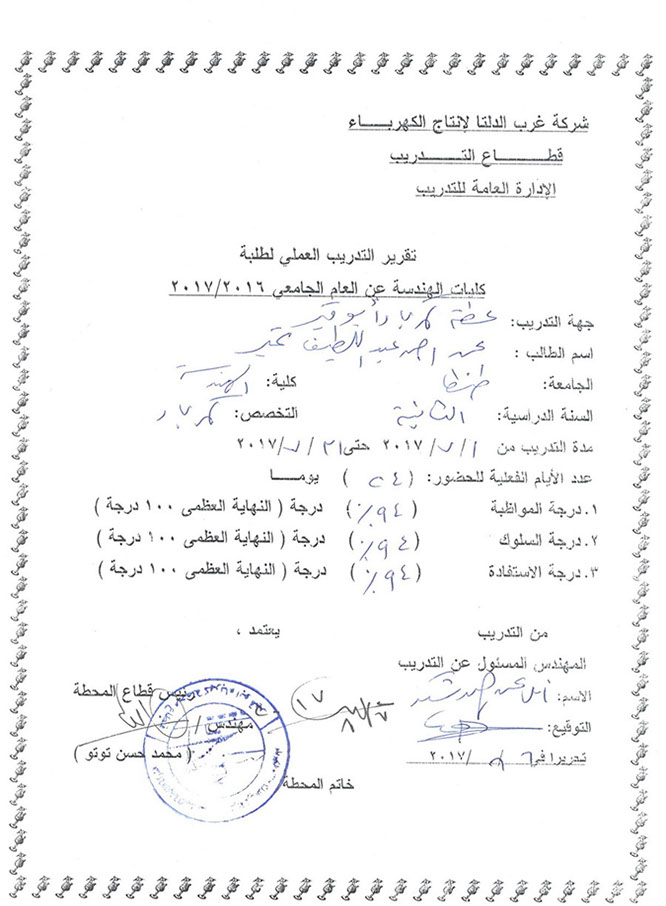 شركة غرب الدلتا لإنتاج الكهربـــــاء
قطـــــــاع التـــــــدريب
الإدارة العامة للتدريب
تقرير التدريب العملي لطلبة
كليات الهندسة عن العام الجامعي ٢٠١٧/٢٠١٦
جهة التدريب: محطة كهرباء أبو قير
اسم الطالب : عبد اللطيف
الجامعة: طنطا كلية: الهندسة
السنة الدراسية: الثانية التخصص: كهرباء
مدة التدريب من ١ /٧ /٢٠١٧ حتى ٣١ /٧ /٢٠١٧
عدد الأيام الفعلية للحضور: ( ) يومـــا
١.درجة المواظبة (٩٤٪) درجة ( النهاية العظمى ١٠٠ درجة )
٢.درجة السلوك (٩٤٪) درجة ( النهاية العظمى ١٠٠ درجة )
٣.درجة الاستفادة (٩٤٪) درجة ( النهاية العظمى ١٠٠ درجة )
من التدريب يعتمد ،
المهندس المسئول عن التدريب
رئيس قطاع المحطة
الاسم:
مهندس /
التوقيع:
( محمد حسن توتو )
تحريرا في ٦ / ٨ /٢٠١٧
خاتم المحطة